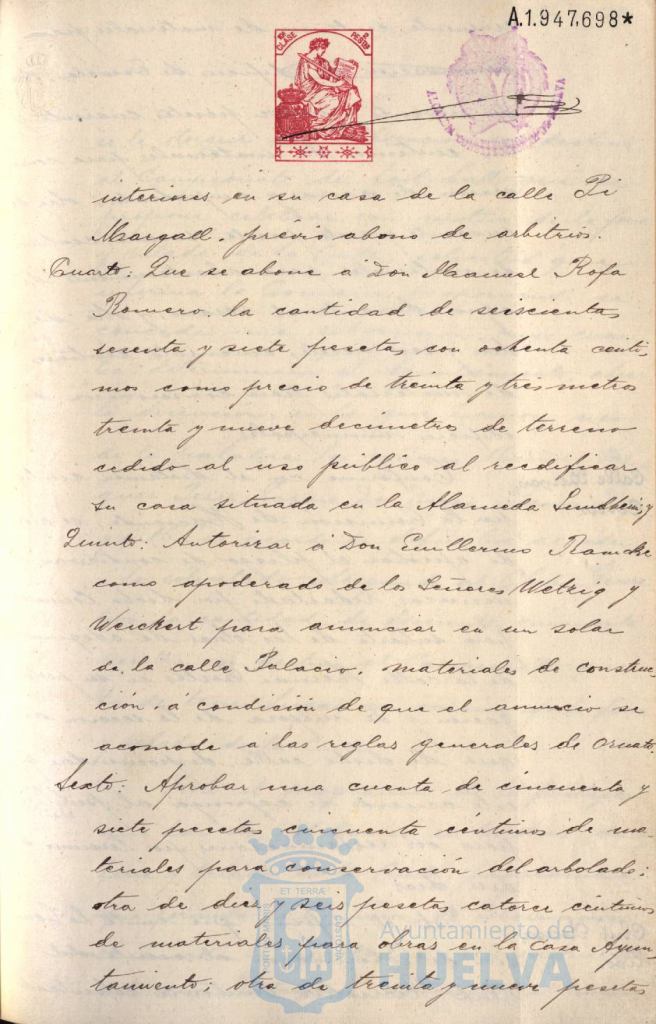 A.1.947,698*
10ª CLASE 2 PESETAS
interiores en su casa de la calle Pi
Margall, prévio abono de arbitrios.
Cuarto: Que se abone á Don Manuel Rofa
Romero, la cantidad de seiscientas
sesenta y siete pesetas con ochenta centi-
mos como precio de treinta y tres metros
treinta y nueve decimetros de terreno
cedido al uso público al reedificar
su casa situada en la Alameda Sundheim; y
Quinto: Autorizar á Don Guillermo
como apoderado de los Señores Wetzig y
Weickert para anunciar en un solar
de la calle Palacio, materiales de construc-
ción, á condición de que el anuncio se
acomode á las reglas generales de ornato.
Sexto: Aprobar una cuenta de cincuenta y
siete pesetas cincuenta céntimos de ma-
teriales para conservación del arbolado;
otra de diez y seis pesetas catorce céntimos
de materiales para obras en la Casa Ayun-
tamiento; otra de treinta y nueve pesetas
ET TERRÆ
Ayuntamiento de
HUELVA